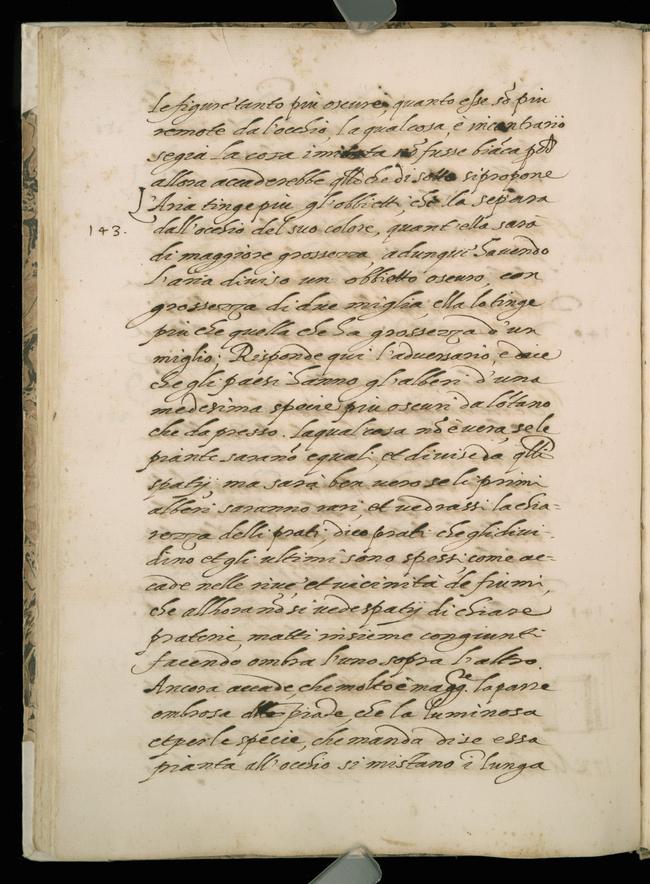 le figure tanto più oscure, quanto esse sõ più
remote da l'occhio, la qual cosa è in contrario
se già la cosa imitata nõ fusse biãca
allora accaderebbe qllo che di sotto si propone
L'Aria tinge più gl'obbietti, che la separa
143. dall'occhio del suo colore, quant'ella sarà
di maggiore grossezza, adunque havendo
l'aria diviso un obbietto oscuro, con
grossezza di due miglia, ella lo tinge
più che quella che ha grossezza d'un
miglio. Risponde qui l'adversario, e dice
che gli paesi hanno gl'alberi d'una
medesima specie più oscuri da lõtano
che da presso. la qual cosa nõ è vera, se le
piante sarañ equali, et divise da qlli
spatij. ma sarà ben vero se li primi
alberi saranno rari, et vedrassi la chia=
rezza delli prati. dico prati che gli divi=
dino et gli ultimi sono spessi, come ac=
cade nelle rive et vicinità de fiumi,
che allhora nõ si vede spatij di chiare
praterie, matti insieme congiunti
facendo ombra l'uno sopra l'altro.
Ancora accade, che molto è magge. la parte
ombrosa delle piãte, che la luminosa
et per le specie, che manda di se essa
pianta all'occhio si mistano ĩ lunga